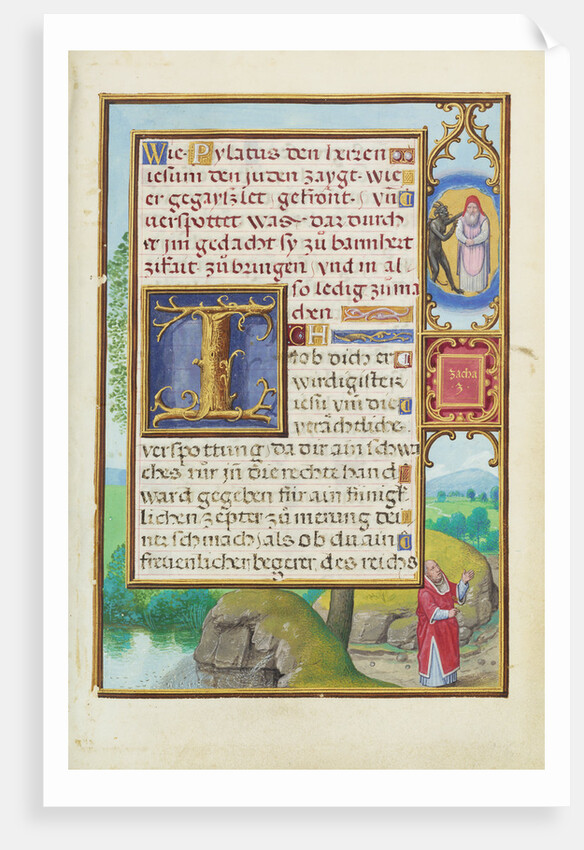 Wie Pylatus den herren
iesum den juden zaygt wie
er gegayszlet gekrönt vnd
verspottet was dar durch
er jm gedacht sy zů barmhert
zikait zů bringen vnd in al
so ledig zů ma
chen
ICH
lob dich er
wirdigister
iesu vm die
verächtliche
verspottung da dir ain schwa
ches rur jn die rechte hand
ward gegeben für ain künigk
lichen zepter zů merung dei
ner schmach als ob du ain
freuenlicher begerer des reichs
zacha
3